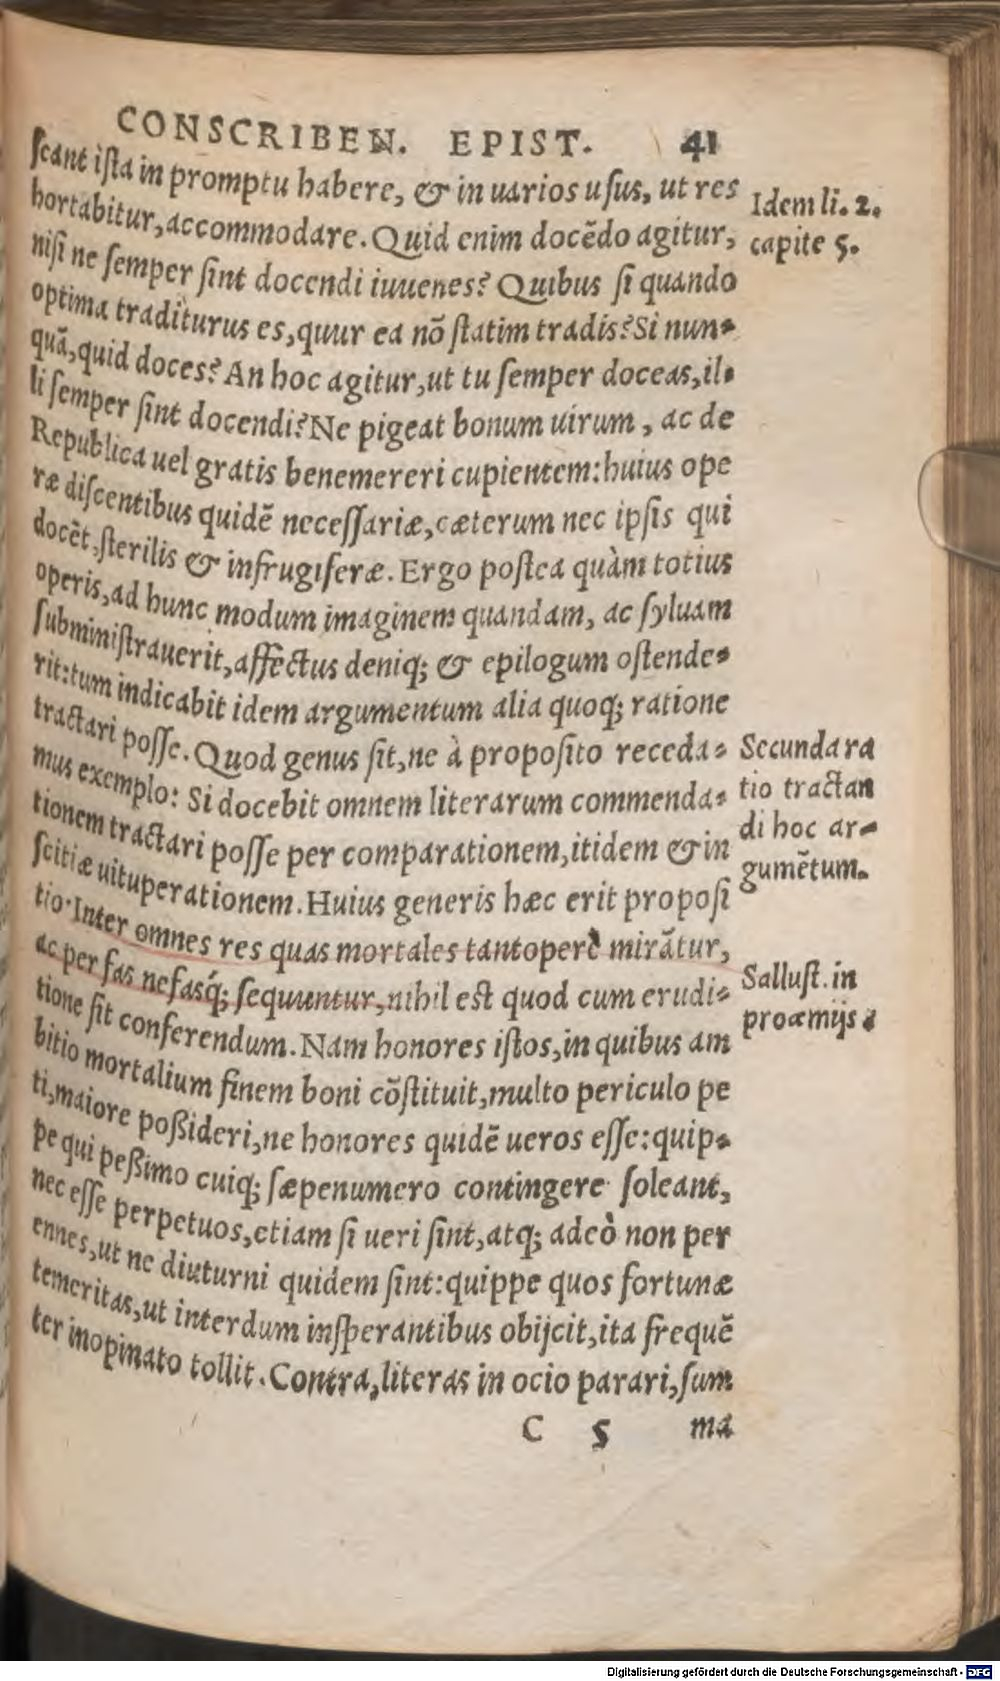 CONSCRIBEN. EPIST. 41
ſcant iſta in promptu habere, & in uarios uſus, ut res
hortabitur, accommodare. Quid enim docẽdo agitur,
niſi ne ſemper ſint docendi iuuenes? Quibus ſi quando
optima traditurus es, quur ea nõ ſtatim tradis? Si nun-
quã, quid doces? An hoc agitur, ut tu ſemper doceas, il-
li ſemper ſint docendi? Ne pigeat bonum uirum, ac de
Republica uel gratis benemereri cupientem: huius ope
ræ diſcentibus quidẽ neceſſariæ, cæterum nec ipſis qui
docẽt, ſterilis & infrugiferæ. Ergo poſtea quàm totius
operis, ad hunc modum imaginem quandam, ac ſyluam
ſubminiſtrauerit, affectus deniq; & epilogum oſtende-
rit: tum indicabit idem argumentum alia quoq; ratione
tractari poſſe. Quod genus ſit, ne à propoſito receda-
mus exemplo: Si docebit omnem literarum commenda-
tionem tractari poſſe per comparationem, itidem & in
ſcitiæ uituperationem. Huius generis hæc erit propoſi
tio. Inter omnes res quas mortales tantoperè mirãtur,
ac per fas nefasq́; ſequuntur, nihil eſt quod cum erudi-
tione ſit conferendum. Nam honores iſtos, in quibus am
bitio mortalium finem boni cõſtituit, multo periculo pe
ti, maiore poßideri, ne honores quidẽ ueros eſſe: quip-
pe qui peßimo cuiq; ſæpenumero contingere ſoleant,
nec eſſe perpetuos, etiam ſi ueri ſint, atq; adeò non per
ennes, ut ne diuturni quidem ſint: quippe quos fortunæ
temeritas, ut interdum inſperantibus obijcit, ita frequẽ
ter inopinato tollit. Contra, literas in ocio parari, ſum
C 5 ma
Idem li. 2.
capite 5.
Secunda ra
tio tractan
di hoc ar-
gumẽtum.
Salluſt. in
proœmijs.
Digitalisierung gefördert durch die Deutsche Forschungsgemeinschaft - DFG